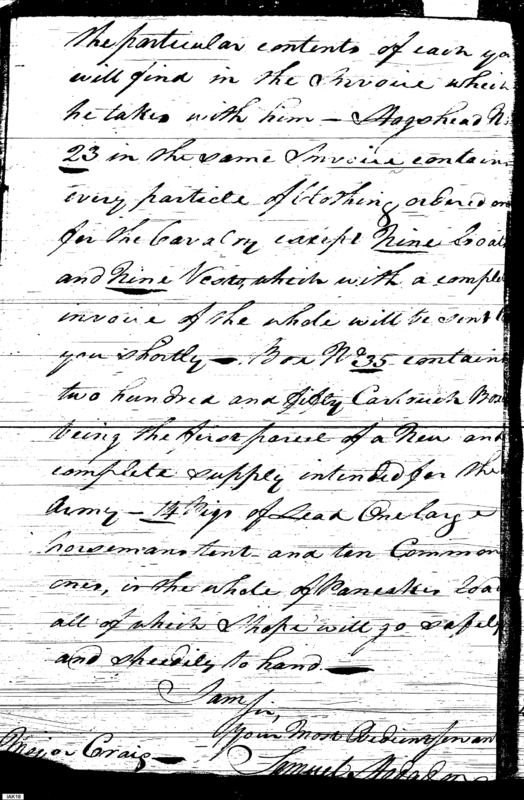 the particular contents of each yo
will find in the Invoice which
he takes with him — Hogshead N:
23 in the same Invoice contains
every particle of Clothing ordered on
for the Cavalry except Nine Coats
and Nine Vests, which with a comple
invoice of the whole will be sent t
you shortly — Box No. 35 contains
two hundred and fifty Cartouch Box
being the first parcel of a New and
complete supply intended for the
Army — 14 Pigs of Lead One large
horsemans tent and ten Common
ones, is the whole of Load
all of which I hope will go safely
and speedily to hand. —
I am Sir,
Your Most Obedient Servan
Major Craig —
Samuel
IAK18